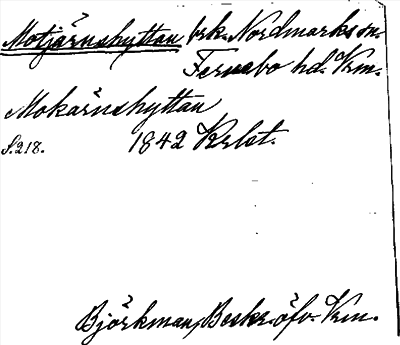 Motjärnshyttan brk. Nordmarks sn.
Fernebo hd. Vrm.
Mokärnshyttan
S. 218. 1842 Krlst.
Björkman, Beskr. öfv. Vrm.